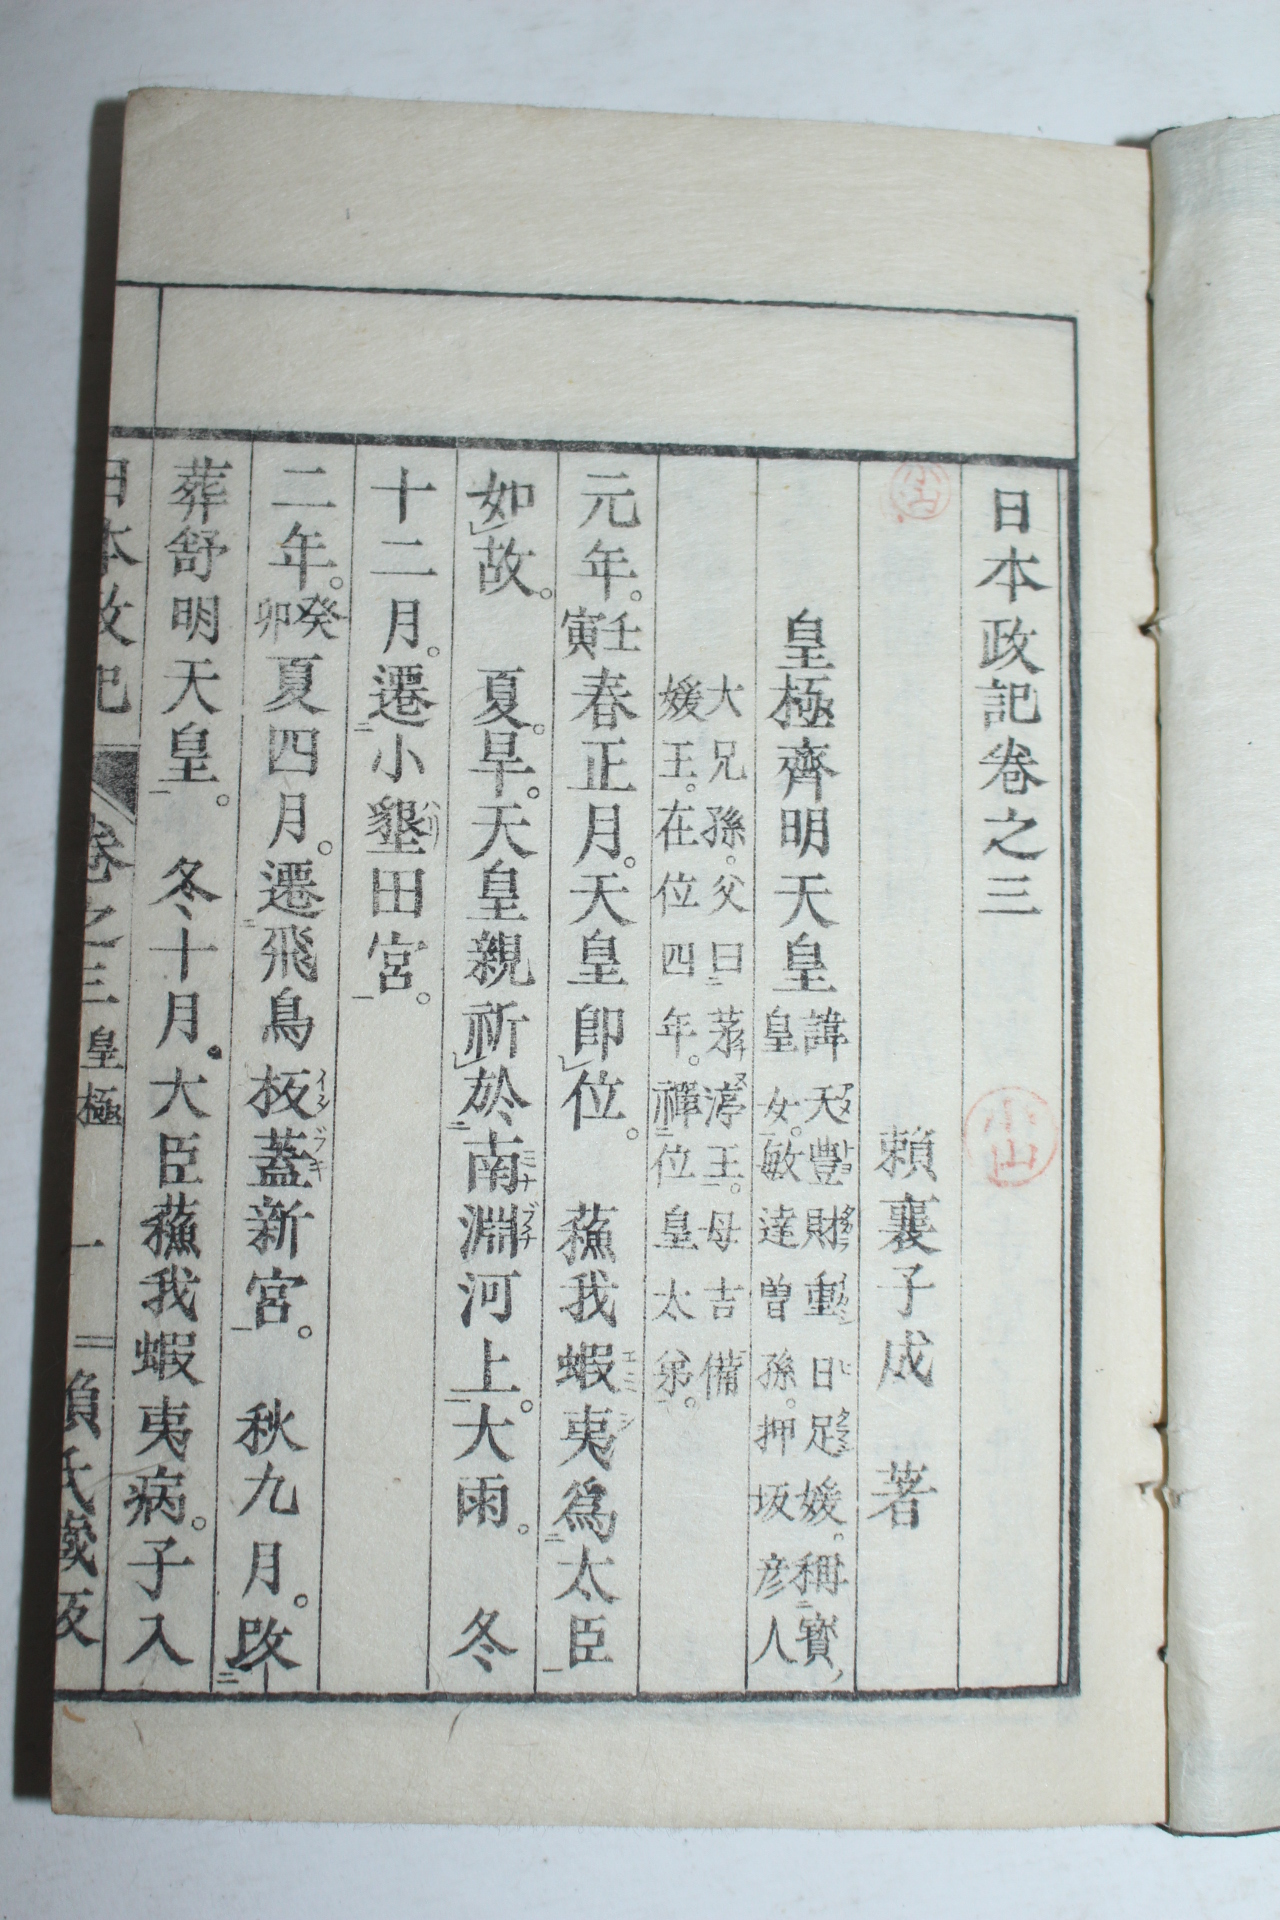 日本政記卷之三
賴襄子成 著
皇極齊明天皇 諱天豐財重日足媛。稱寶
皇女。敏達曾孫。押坂彦人
大兄孫。父曰茅渟王。母吉備
媛王。在位四年。禪位皇太弟。
元年。壬寅春正月。天皇卽位。 蘇我蝦夷爲大臣
如故。 夏。旱。天皇親祈於南淵河上。大雨。 冬
十二月。遷小墾田宮。
二年。癸卯夏四月。遷飛鳥板蓋新宮。 秋九月。改
葬舒明天皇。 冬十月。大臣蘇我蝦夷病。子入
日本政記 卷之三 皇極 一 賴氏藏板
小山